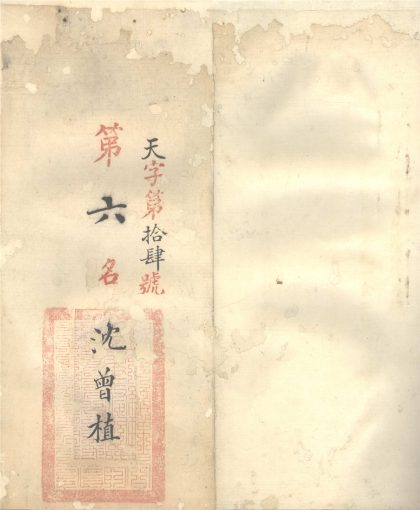 天字第拾肆號
第六名
沈曾植